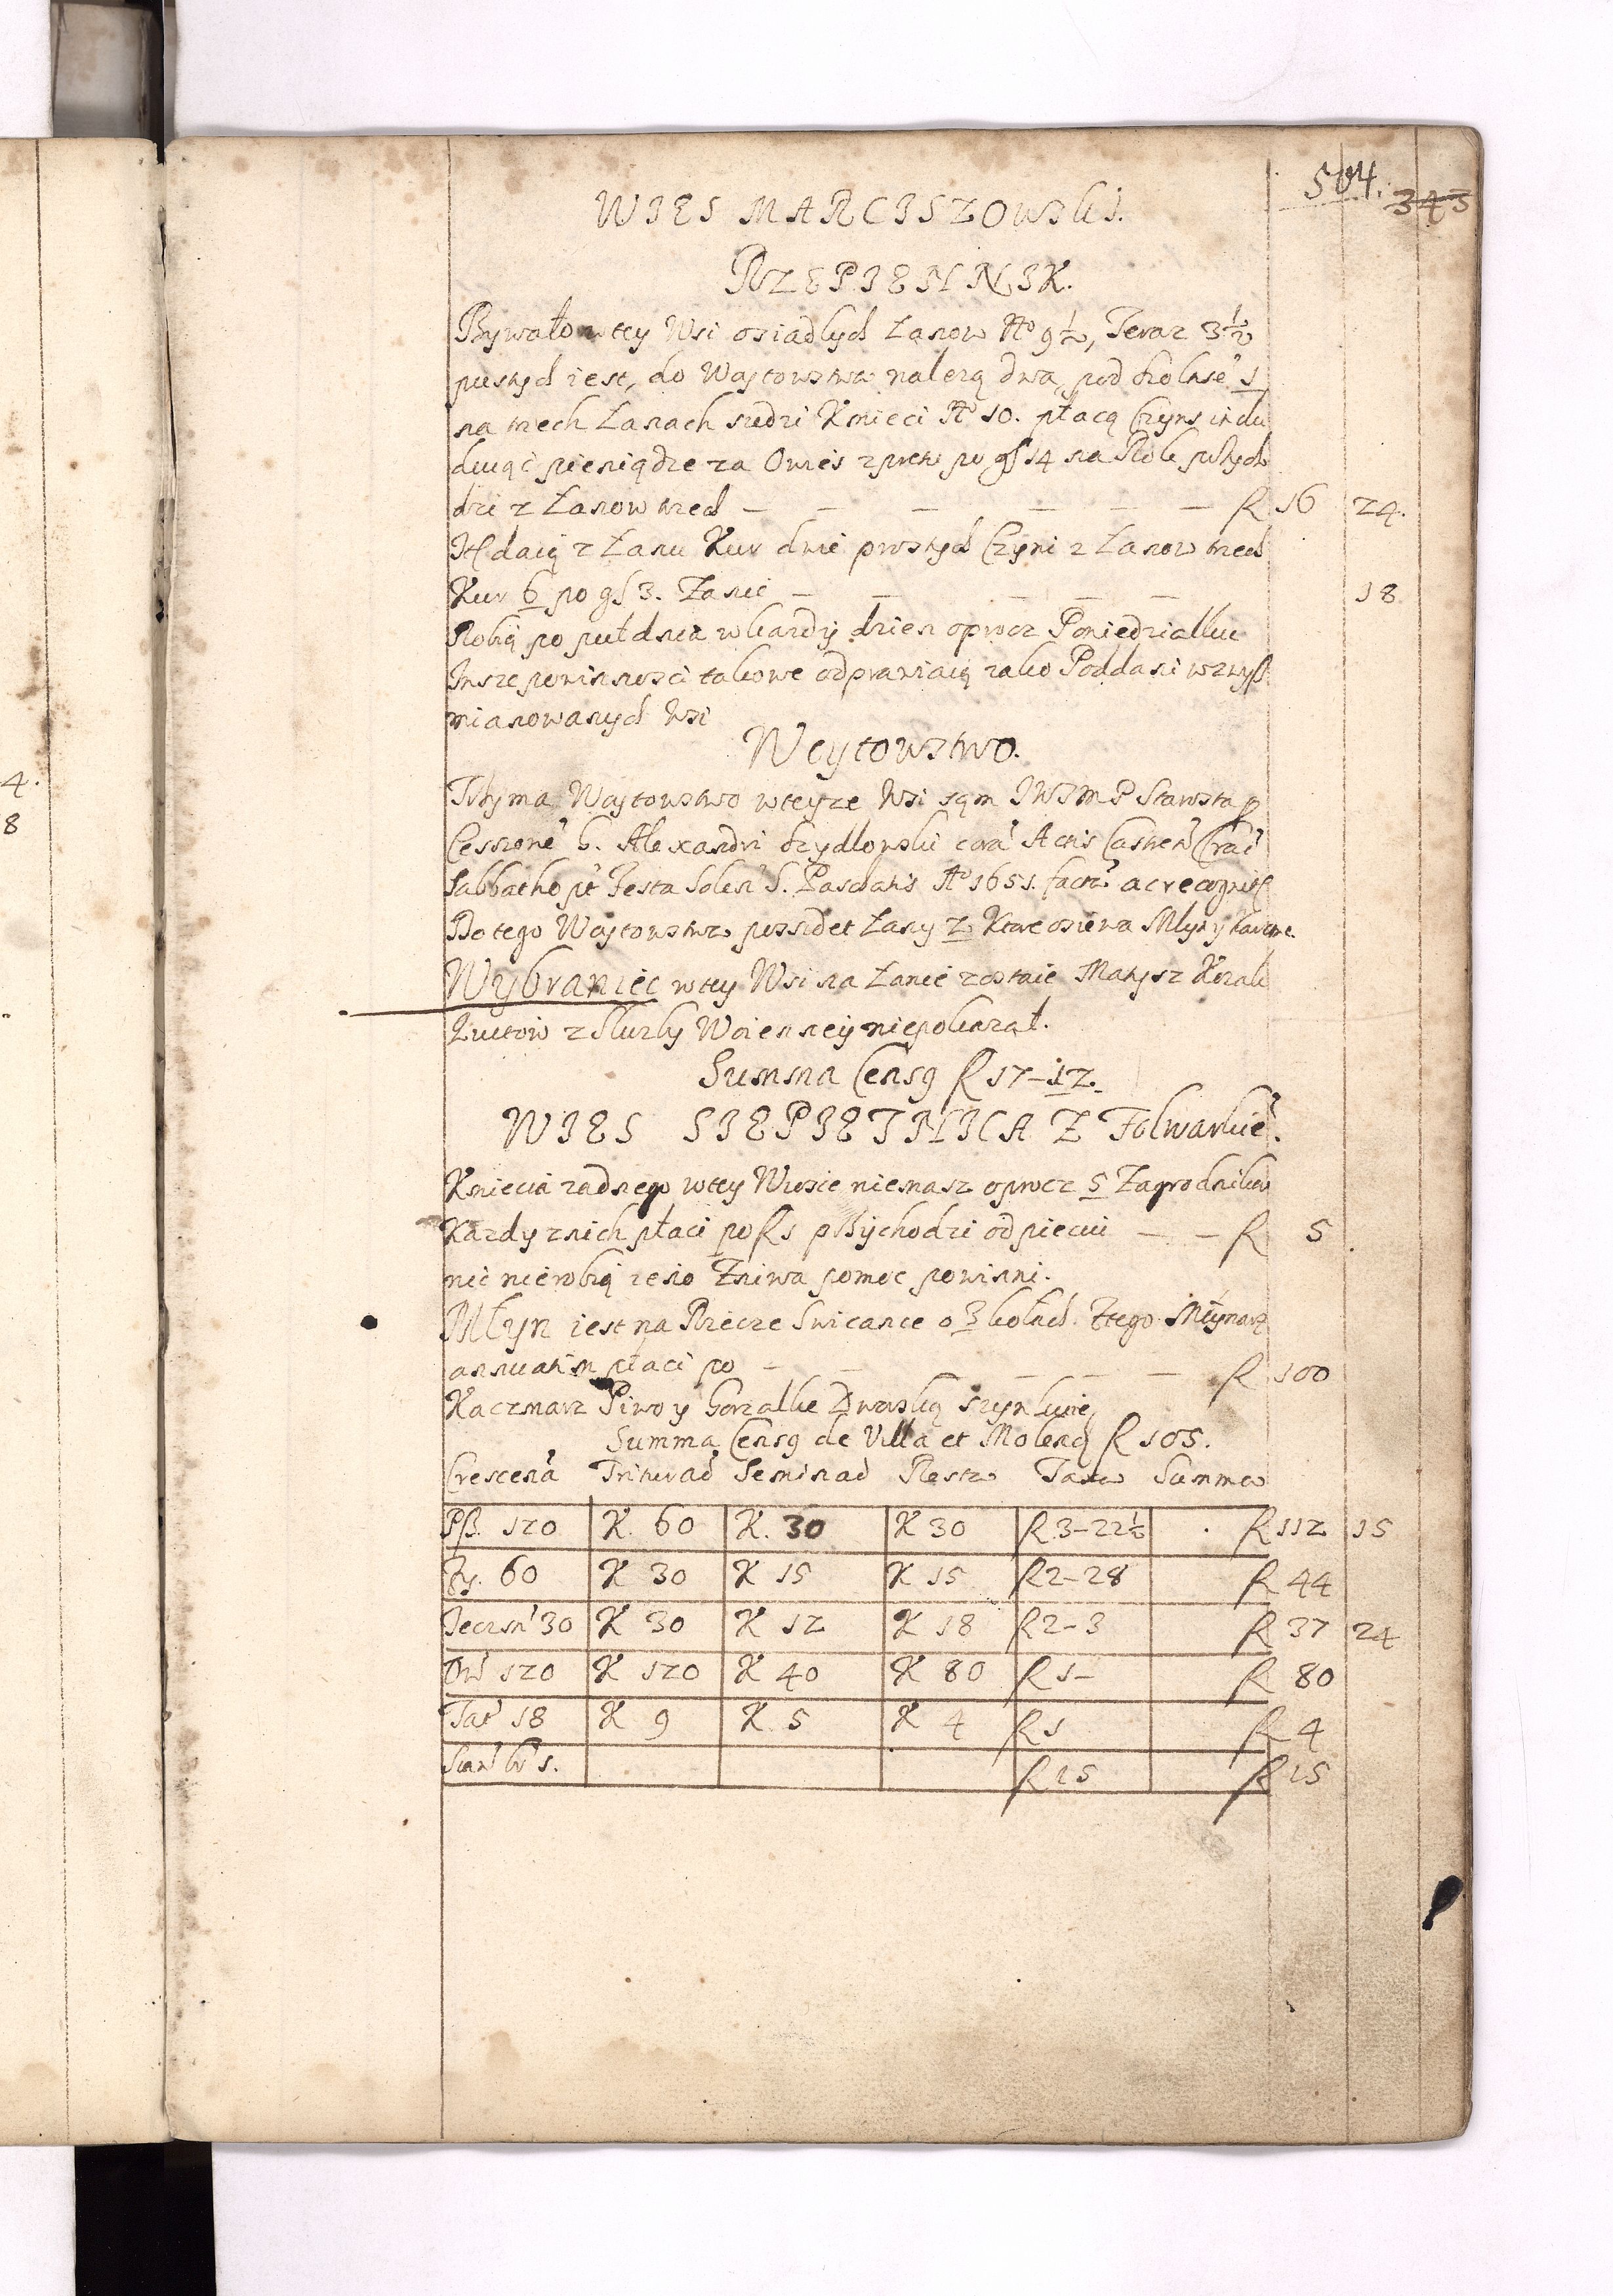 504. 343
WIES MARCISZOWSKI.
RZEPIENNIK.
Bywało w tey Wsi osiadłych Łanow No 9½, Teraz 3½
pustych iest, do Woytowstwa nalezą dwa, pod
na trech Łanach siedzi Kmieci No 10. płacą Czynsz
pieniądze za Owies po gs 14 na Rok
dzi z Łanow trech — — — — — — R 16 24.
daią z Łanu Kur dwie Czyni z Łanow trech
Kur 6 po gs 3. Łanie — — — — — 18
Robią po puł dnia w kazdy dzien oprocz Poniedziałku
Insze powinnosci takowe odprawiaią iako Poddani w zwysz
mianowanych Wsi
Woytowstwo.
Trzyma Woytowstwo w teyze Wsi
Alexandri Actis
Sabbatho Festa S. Paschatis Ao 1651.
Do tego Woytowstwa possidet Łany 2 Młyn y
Wybraniec w tey Wsi na Łanie zostaie Matysz
z Sluzby Woienney niepokazał.
Summa Censq R 17–12.
WIES SIEPIETNICA Z Folwarkie.
Kmiecia zadnego w tey Wiosce niemasz oprocz 5 Zagrodnikow
Kazdy znich płaci po R 1 przychodzi od pieciu — — R 5.
nic nierobią ieno Zniwa pomoc powinni.
Młyn iest na Rzece o 3 kołach. Ztego Młynarz
annuatim płaci po — — — — — R 100
Kaczmarz Piwo y Gorzalke Dworską szynkuie
Summa Censq de Villa et Molend R 105.
Crescen Triturad Seminad Resta Taxa Summa
Psz. 120 K. 60 K. 30 K 30 R 3–22½ R 112 15
Zy. 60 K 30 K 15 K 15 R 2–28 R 44
Jeczm 30 K 30 K 12 K 18 R 2–3 R 37 24
Ow 120 K 120 K 40 K 80 R 1– R 80
Tat 18 K 9 K. 5 K 4 R 1 R 4
R 15 R 15
4.
8